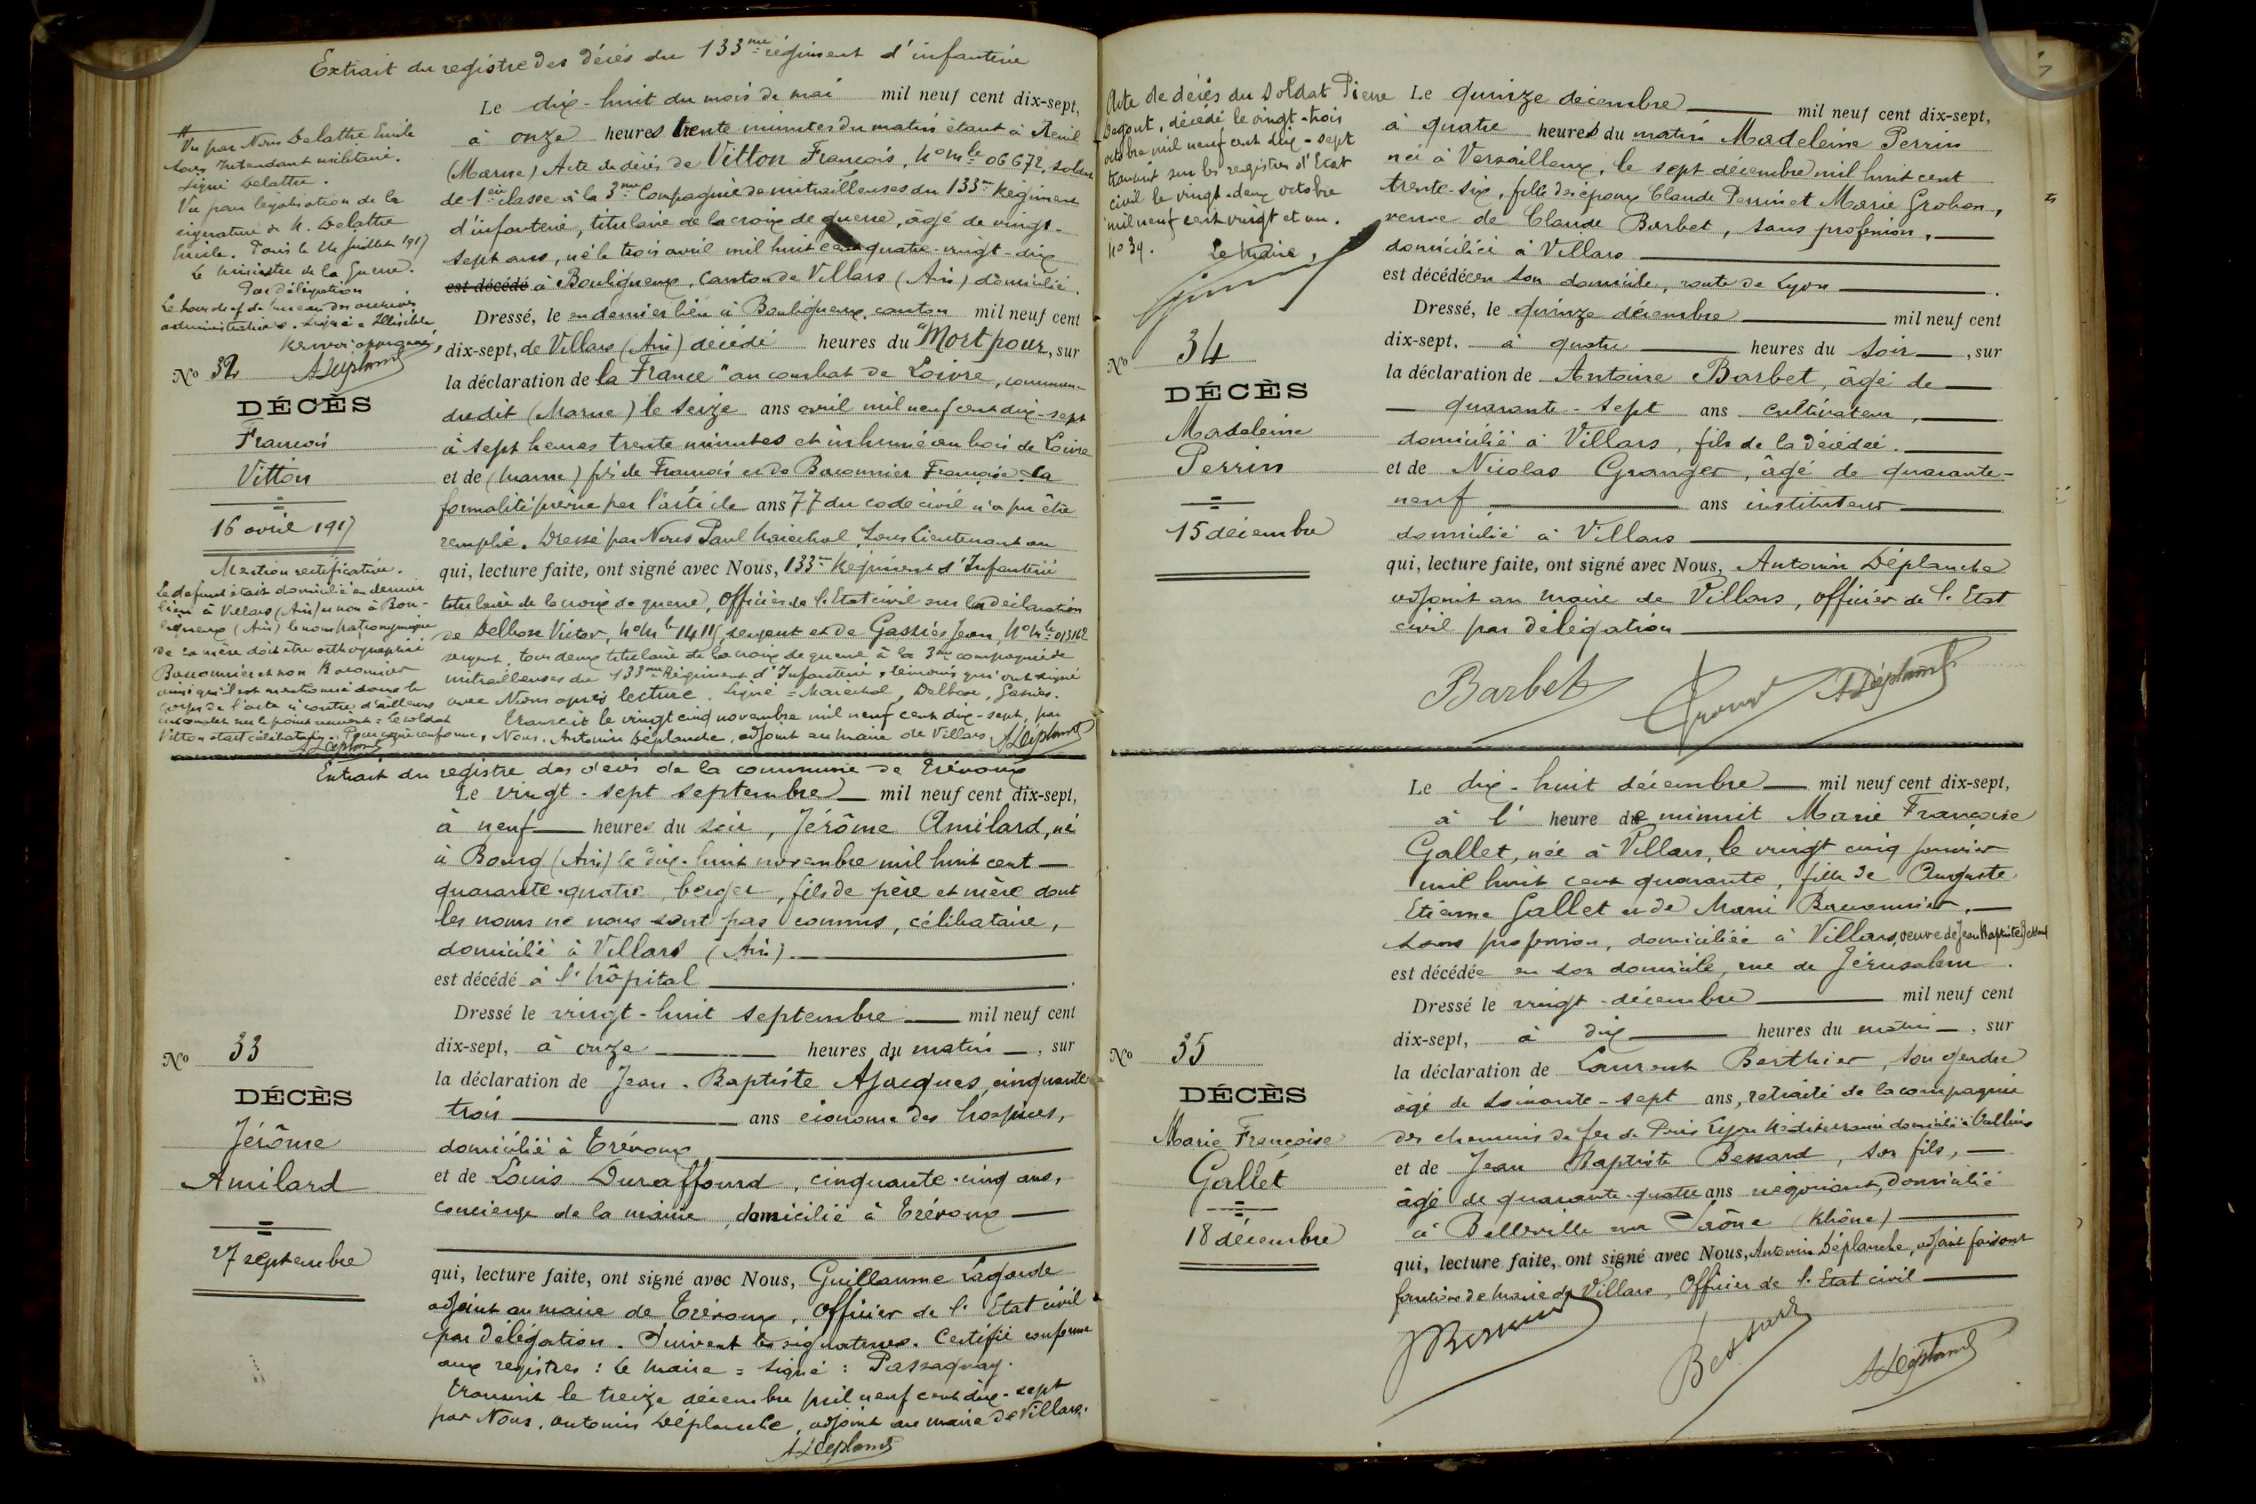 Extrait du registre des décès du 133me régiment d'infanterie
Vu par Nous Delattre Emile
Sous Intendant militaire.
Signé Delattre.
Vu pour légalisation de la
signature de M. Delattre
Emile. Paris le 24 Juillet 1917
Le Ministre de la Guerre.
Par délégation
Le Sous chef de bureau des archives
administratives. Signé = Illisible
No 32
DÉCÈS
François
Vitton
16 avril 1917
Mention rectificative.
Le défunt était domicilié en dernier
lieu à Villars (Ain) et non à Bou-
ligneux (Ain) le nom patronymique
de sa mère doit être orthographié
Bouconnier et non
ainsi qu'il est mentionné dans le
corps de l'acte
Vitton était célibataire. Pour copie conforme,
Le dix-huit du mois de mai mil neuf cent dix-sept,
à onze heures trente minutes du matin étant à Reuil
(Marne) Acte de décès de Vitton François, No Mle 06672, soldat
de 1ère classe à la 3me Compagnie de mitrailleuses du 133me Régiment
d'infanterie, titulaire de la croix de guerre, âgé de vingt-
sept ans, né le trois avril mil huit cent quatre-vingt-dix
est décédé à Bouligneux, canton de Villars (Ain) domicilié.
Dressé, le en dernier lieu à Bouligneux, canton mil neuf cent
dix-sept, de Villars (Ain) décédé heures du "Mort pour, sur
la déclaration de la France" au combat de Loivre, commune
dudit (Marne) le seize ans avril mil neuf cent dix-sept
à sept heures trente minutes et inhumé au bois de Loivre
et de (Marne) fils de François et de Françoise - la
formalité prévue par l'article ans 77 du code civil n'a pu être
remplie. Dressé par Nous Paul Maréchal, Sous Lieutenant au
qui, lecture faite, ont signé avec Nous, 133me Régiment d'Infanterie
titulaire de la croix de guerre, Officier de l'Etat civil sur la déclaration
de Delbose Victor, No Mle 1411, sergent et de Gassiés Jean, No Mle 013162
sergent, tous deux titulaire de la croix de guerre à la 3me compagnie de
mitrailleuses du 133me Régiment d'Infanterie, témoins qui ont signé
avec Nous après lecture. Signé = Maréchal, Delbose, Gassiés.
Transcrit le vingt cinq novembre mil neuf cent dix-sept, par
Nous, Antonin Déplanche, adjoint au maire de Villars
Extrait du registre des décès de la commune de Trévoux
No 33
DÉCÈS
Jérôme
Amilard
27 septembre
Le vingt-sept septembre mil neuf cent dix-sept,
à neuf heures du soir, Jérôme Amilard, né
à Bourg (Ain) le dix-huit novembre mil huit cent
quarante-quatre, berger, fils de père et mère dont
les noms ne nous sont pas connus, célibataire,
domicilié à Villars (Ain).
est décédé à l'hôpital.
Dressé le vingt-huit septembre mil neuf cent
dix-sept, à onze heures du matin, sur
la déclaration de Jean-Baptiste Ajacques, cinquante
trois ans économe des hospices,
domicilié à Trévoux
et de Louis Duraffourd, cinquante-cinq ans,
concierge de la mairie, domicilié à Trévoux
qui, lecture faite, ont signé avec Nous, Guillaume Lagarde
adjoint au maire de Trévoux, Officier de l'Etat civil
par délégation. Suivent les signatures. Certifié conforme
aux registres : Le Maire = Signé : Passaquay.
Transcrit le treize décembre mil neuf cent dix-sept
par Nous, Antonin Déplanche, adjoint au maire de Villars.
ADéplanche
Acte de décès du soldat Pierre
décédé le vingt-trois
octobre mil neuf cent dix-sept
transcrit sur les registres d'Etat
civil le vingt-deux octobre
mil neuf cent vingt et un.
No 34.
Le Maire,
No 34
DÉCÈS
Madeleine
Perrin
15 décembre
Le quinze décembre mil neuf cent dix-sept,
à quatre heures du matin Madeleine Perrin
née à Versailleux, le sept décembre mil huit cent
trente-six, fille des époux Claude Perrin et Marie Grobon,
veuve de Claude Barbet, sans profession,
domiciliée à Villars
est décédée en son domicile, route de Lyon.
Dressé, le quinze décembre mil neuf cent
dix-sept, à quatre heures du soir, sur
la déclaration de Antoine Barbet, âgé de
quarante-sept ans cultivateur,
domicilié à Villars, fils de la décédée.
et de Nicolas Granger, âgé de quarante-
neuf ans instituteur
domicilié à Villars
qui, lecture faite, ont signé avec Nous, Antonin Déplanche
adjoint au maire de Villars, Officier de l'Etat
civil par délégation
Barbet
ADéplanche
No 35
DÉCÈS
Marie Françoise
Gallet
18 décembre
Le dix-huit décembre mil neuf cent dix-sept,
à l' heure de minuit Marie Françoise
Gallet, née à Villars, le vingt cinq janvier
mil huit cent quarante, fille de Auguste
Etienne Gallet et de Marie
sans profession, domiciliée à Villars, veuve de Jean Baptiste
est décédée en son domicile, rue de Jérusalem.
Dressé le vingt-décembre mil neuf cent
dix-sept, à dix heures du matin, sur
la déclaration de Laurent Berthier, son gendre
âgé de soixante-sept ans, retraité de la compagnie
des chemins de fer de Paris Lyon Méditerranée domicilié à
et de Jean Baptiste Bessard, son fils,
âgé de quarante-quatre ans négociant, domicilié
à Belleville sur Saône (Rhône)
qui, lecture faite, ont signé avec Nous, Antonin Déplanche, adjoint faisant
fonctions de maire de Villars, Officier de l'Etat civil
Bessard
ADéplanche